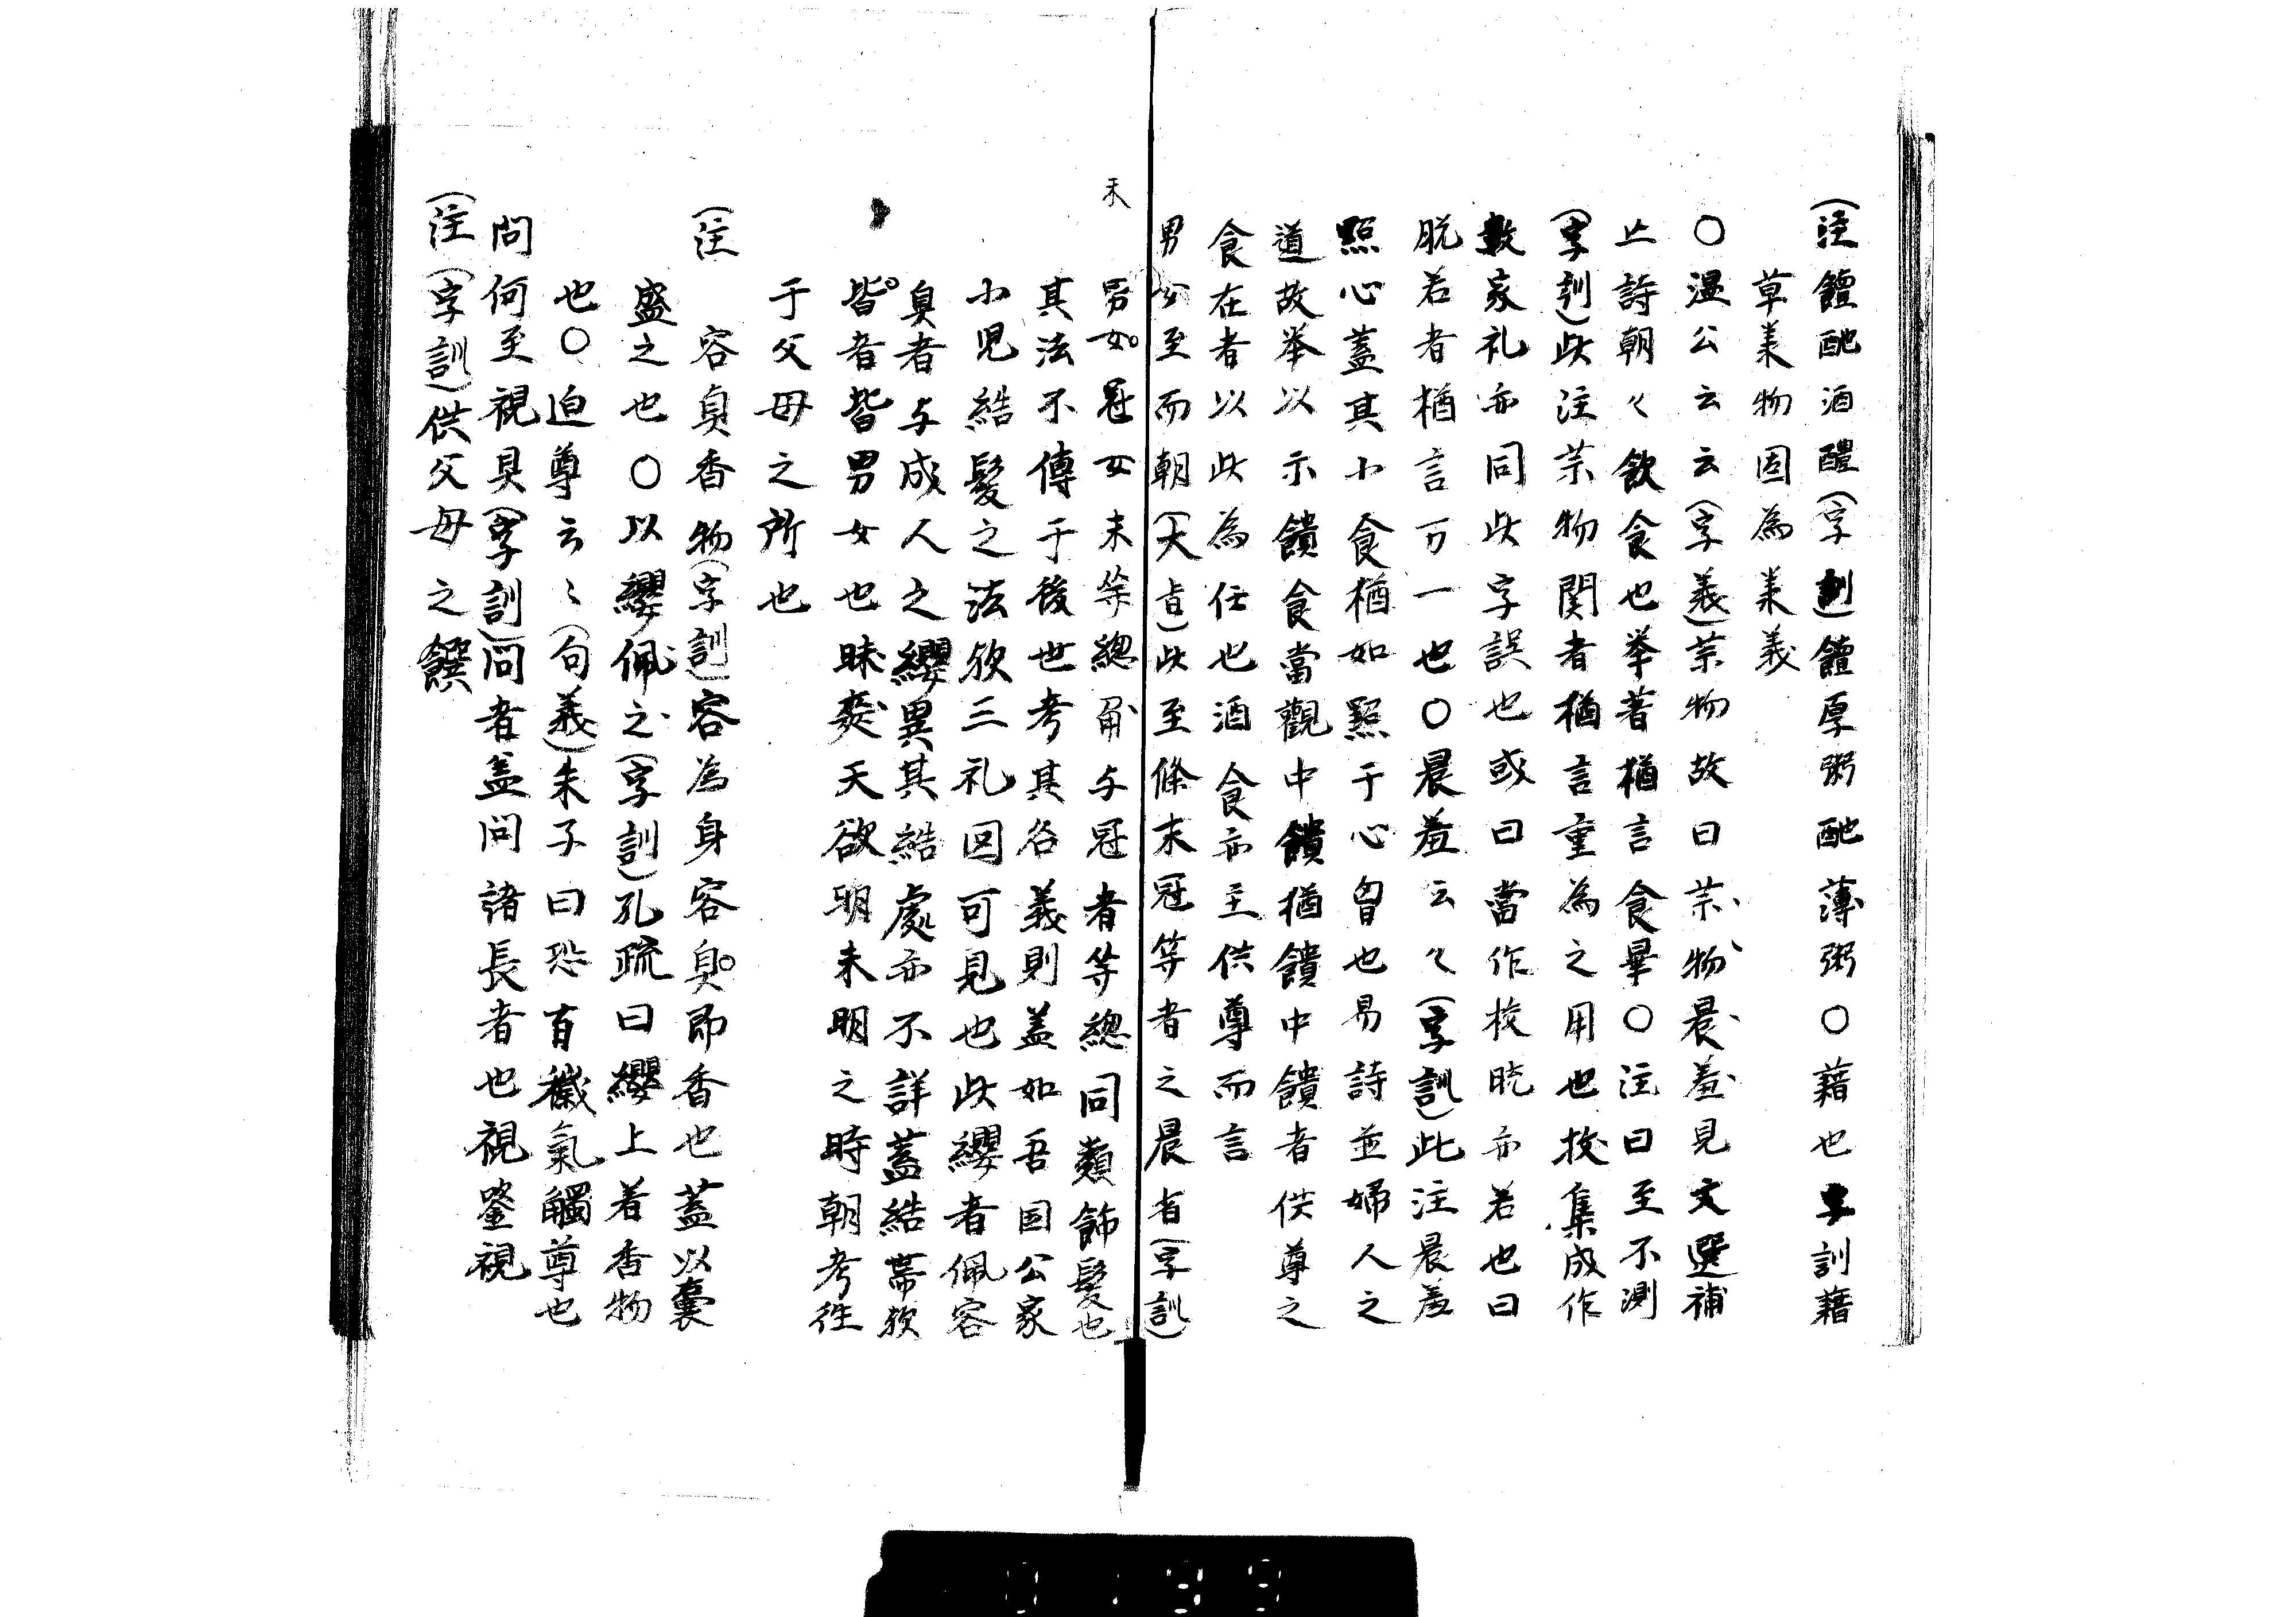 (注)饘酏酒醴(字訓)饘厚粥酏薄粥○藉也字訓藉
草菜物因為菜義
○温公云云(字義)茶物故曰茶物晨羞見文選補
亡詩朝々飲食也挙著猶言食畢○注曰至不測
(字訓)此注茶物関者猶言重為之用也按集成作
數家礼亦同此字誤也或曰當作按脱亦若也曰
脱若者猶言万一也○晨羞云々(字訓)此注晨羞
點心蓋其小食猶如點于心胷也易詩並婦人之
道故挙以示饋食當觀中饋猶饋中饋者供尊之
食在者以此為任也酒食亦主供尊而言
男女至而朝(大旨)此至條末冠等者之晨省(字訓)
未
男女冠女未笄總角与冠者等總同類飾髮也
其法不傳于後世考其名義則蓋如吾国公家
小児結髮之法歟三礼図可見也此纓者佩容
臭者与成人之纓異其結處亦不詳蓋結帯歟
皆者皆男女也昧爽天欲明未明之時朝考徃
于父母之所也
(注)容臭香物(字訓)容為身容臭即香也蓋以囊
盛之也○以纓佩之(字訓)孔疏曰纓上着香物
也○迫尊云〻(句義)朱子曰恐有穢氣觸尊也
問何至視具(字訓)問者盖問諸長者也視鉴視
(注)(字訓)供父母之饌